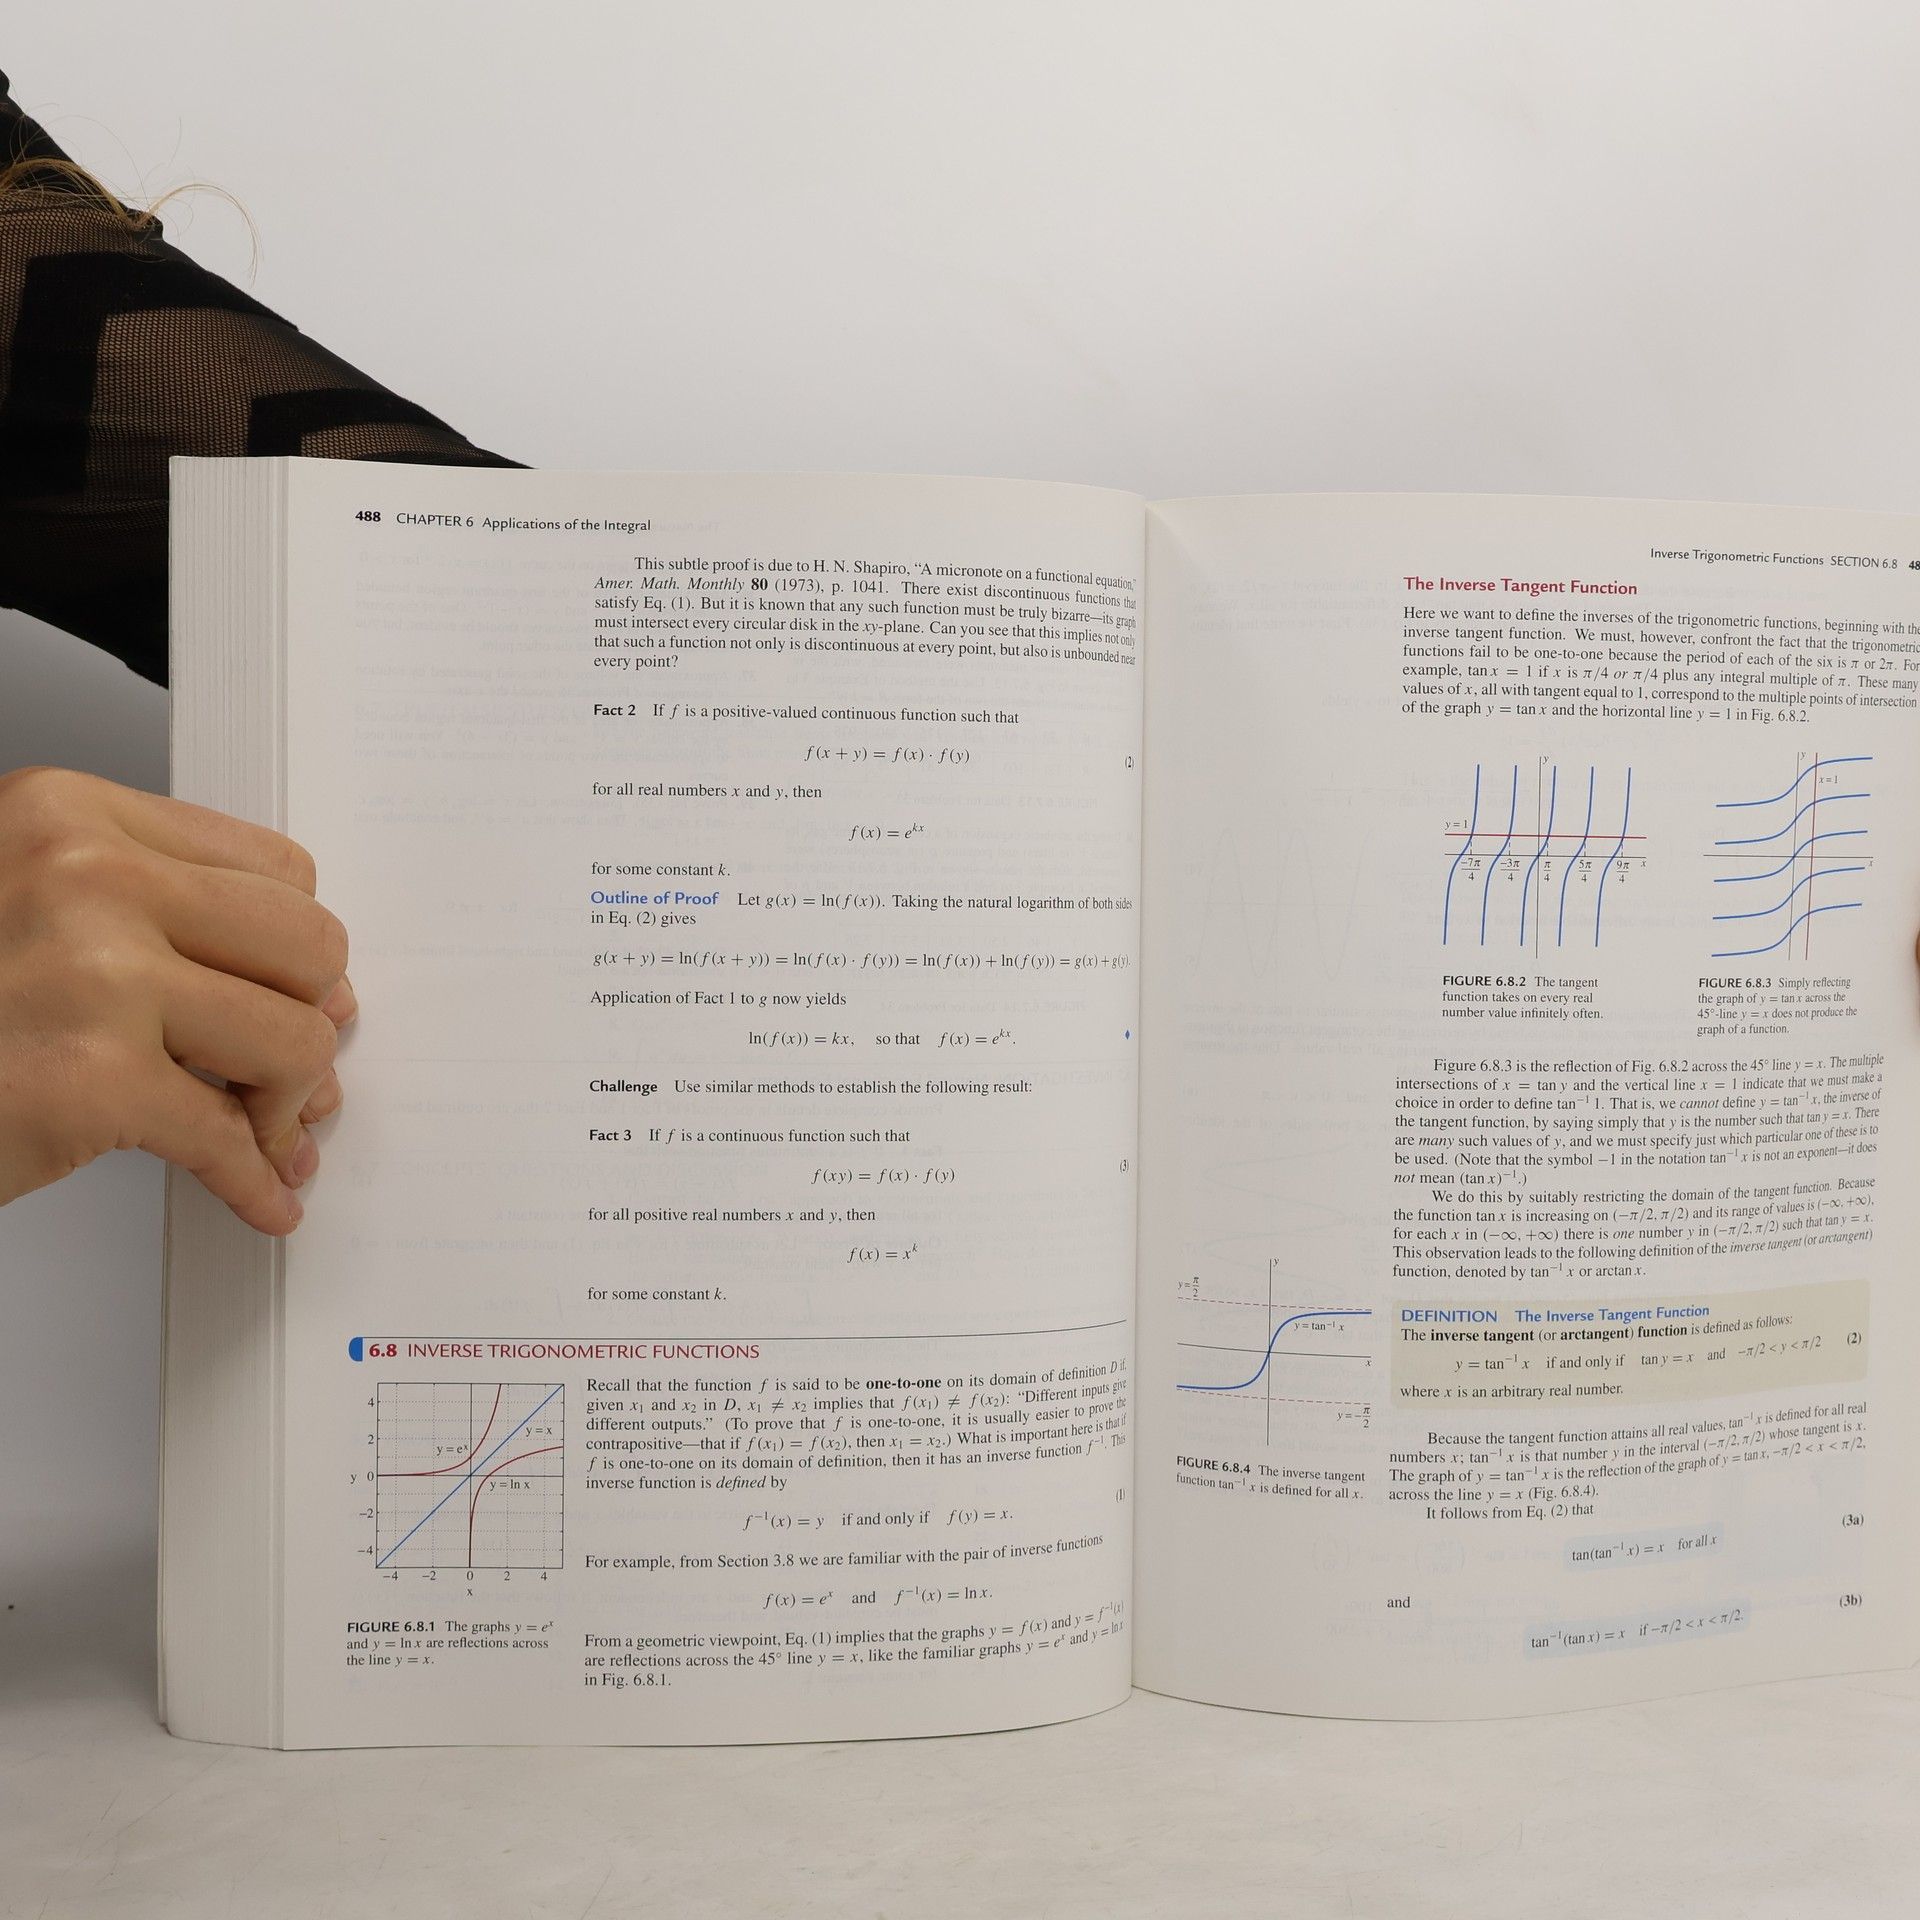 488 CHAPTER 6 Applications of the Integral
This subtle proof is due to H. N. Shapiro, “A micronote on a functional equation,”
Amer. Math. Monthly 80 (1973), p. 1041. There exist discontinuous functions that
satisfy Eq. (1). But it is known that any such function must be truly bizarre—its graph
must intersect every circular disk in the xy-plane. Can you see that this implies not only
that such a function not only is discontinuous at every point, but also is unbounded near
every point?
Fact 2 If f is a positive-valued continuous function such that
f(x + y) = f(x) · f(y) (2)
for all real numbers x and y, then
f(x) = e^{kx}
for some constant k.
Outline of Proof Let g(x) = ln(f(x)). Taking the natural logarithm of both sides
in Eq. (2) gives
g(x + y) = ln(f(x + y)) = ln(f(x) · f(y)) = ln(f(x)) + ln(f(y)) = g(x) + g(y).
Application of Fact 1 to g now yields
ln(f(x)) = kx, so that f(x) = e^{kx}.
Challenge Use similar methods to establish the following result:
Fact 3 If f is a continuous function such that
f(xy) = f(x) · f(y) (3)
for all positive real numbers x and y, then
f(x) = x^k
for some constant k.
6.8 INVERSE TRIGONOMETRIC FUNCTIONS
Recall that the function f is said to be one-to-one on its domain of definition D if,
given x₁ and x₂ in D, x₁ ≠ x₂ implies that f(x₁) ≠ f(x₂): “Different inputs give
different outputs.” (To prove that f is one-to-one, it is usually easier to prove the
contrapositive—that if f(x₁) = f(x₂), then x₁ = x₂.) What is important here is that if
f is one-to-one on its domain of definition, then it has an inverse function f⁻¹. This
inverse function is defined by
f⁻¹(x) = y if and only if f(y) = x. (1)
For example, from Section 3.8 we are familiar with the pair of inverse functions
f(x) = e^x and f⁻¹(x) = ln x.
From a geometric viewpoint, Eq. (1) implies that the graphs y = f(x) and y = f⁻¹(x)
are reflections across the 45° line y = x, like the familiar graphs y = e^x and y = ln x
in Fig. 6.8.1.
4
2
y 0
−2
−4
y = e^x
y = x
y = ln x
−4 −2 0 2 4
x
FIGURE 6.8.1 The graphs y = e^x
and y = ln x are reflections across
the line y = x.
Inverse Trigonometric Functions SECTION 6.8 48
The Inverse Tangent Function
Here we want to define the inverses of the trigonometric functions, beginning with the
inverse tangent function. We must, however, confront the fact that the trigonometric
functions fail to be one-to-one because the period of each of the six is π or 2π. For
example, tan x = 1 if x is π/4 or π/4 plus any integral multiple of π. These many
values of x, all with tangent equal to 1, correspond to the multiple points of intersection
of the graph y = tan x and the horizontal line y = 1 in Fig. 6.8.2.
y
y = 1
−7π/4 −3π/4 π/4 5π/4 9π/4 x
FIGURE 6.8.2 The tangent
function takes on every real
number value infinitely often.
y
x = 1
x
FIGURE 6.8.3 Simply reflecting
the graph of y = tan x across the
45°-line y = x does not produce the
graph of a function.
Figure 6.8.3 is the reflection of Fig. 6.8.2 across the 45° line y = x. The multiple
intersections of x = tan y and the vertical line x = 1 indicate that we must make a
choice in order to define tan⁻¹ 1. That is, we cannot define y = tan⁻¹ x, the inverse of
the tangent function, by saying simply that y is the number such that tan y = x. There
are many such values of y, and we must specify just which particular one of these is to
be used. (Note that the symbol −1 in the notation tan⁻¹ x is not an exponent—it does
not mean (tan x)⁻¹.)
We do this by suitably restricting the domain of the tangent function. Because
the function tan x is increasing on (−π/2, π/2) and its range of values is (−∞, +∞),
for each x in (−∞, +∞) there is one number y in (−π/2, π/2) such that tan y = x.
This observation leads to the following definition of the inverse tangent (or arctangent)
function, denoted by tan⁻¹ x or arctan x.
DEFINITION The Inverse Tangent Function
The inverse tangent (or arctangent) function is defined as follows:
y = tan⁻¹ x if and only if tan y = x and −π/2 < y < π/2 (2)
where x is an arbitrary real number.
y
y = π/2
y = tan⁻¹ x
x
y = −π/2
FIGURE 6.8.4 The inverse tangent
function tan⁻¹ x is defined for all x.
Because the tangent function attains all real values, tan⁻¹ x is defined for all real
numbers x; tan⁻¹ x is that number y in the interval (−π/2, π/2) whose tangent is x.
The graph of y = tan⁻¹ x is the reflection of the graph of y = tan x, −π/2 < x < π/2,
across the line y = x (Fig. 6.8.4).
It follows from Eq. (2) that
tan(tan⁻¹ x) = x for all x (3a)
and
tan⁻¹(tan x) = x if −π/2 < x < π/2. (3b)